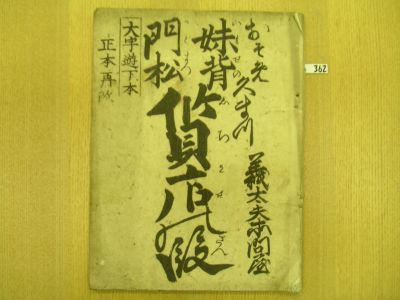 おそめ
久まつ
妹背
いもせの
門松
かどまつ
質店の段
しちみせ だん
義太夫本問屋
大字遊下本
正本再版
362